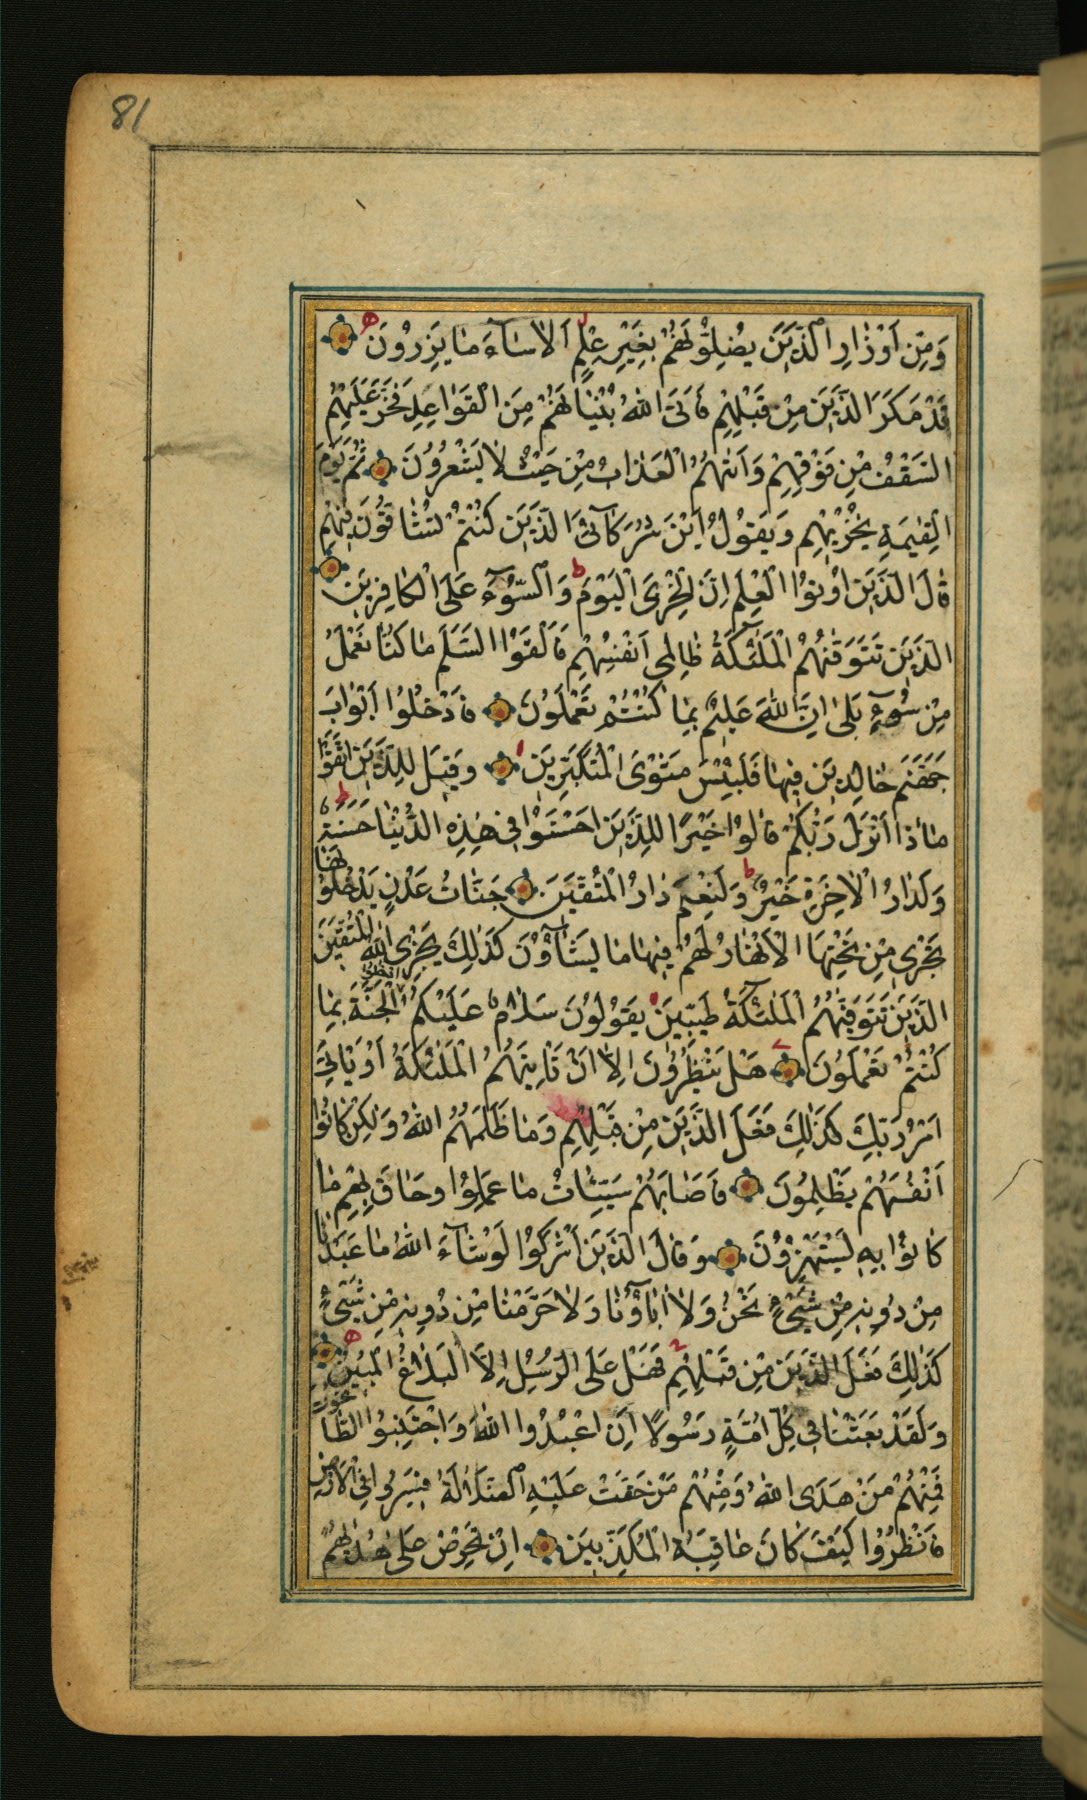 81
وَمِنْ اَوْزَارِ الَّذٖينَ يُضِلُّونَهُمْ بِغَيْرِ عِلْمٍ اَلَا سَٓاءَ مَا يَزِرُونَ
قَدْ مَكَرَ الَّذٖينَ مِنْ قَبْلِهِمْ فَاَتَى اللّٰهُ بُنْيَانَهُمْ مِنَ الْقَوَاعِدِ فَخَرَّ عَلَيْهِمُ
السَّقْفُ مِنْ فَوْقِهِمْ وَاَتٰيهُمُ الْعَذَابُ مِنْ حَيْثُ لَا يَشْعُرُونَ ثُمَّ يَوْمَ
الْقِيٰمَةِ يُخْزٖيهِمْ وَيَقُولُ اَيْنَ شُرَكَٓائِىَ الَّذٖينَ كُنْتُمْ تُشَٓاقُّونَ فٖيهِمْ
قَالَ الَّذٖينَ اُوتُوا الْعِلْمَ اِنَّ الْخِزْىَ الْيَوْمَ وَالسُّٓوءَ عَلَى الْكَافِرٖينَ
الَّذٖينَ تَتَوَفّٰيهُمُ الْمَلٰٓئِكَةُ ظَالِمٖى اَنْفُسِهِمْ فَاَلْقَوُا السَّلَمَ مَا كُنَّا نَعْمَلُ
مِنْ سُٓوءٍ بَلٰى اِنَّ اللّٰهَ عَلٖيمٌ بِمَا كُنْتُمْ تَعْمَلُونَ فَادْخُلُوا اَبْوَابَ
جَهَنَّمَ خَالِدٖينَ فٖيهَا فَلَبِئْسَ مَثْوَى الْمُتَكَبِّرٖينَ وَقٖيلَ لِلَّذٖينَ اتَّقَوْا
مَاذَا اَنْزَلَ رَبُّكُمْ قَالُوا خَيْرًا لِلَّذٖينَ اَحْسَنُوا فٖى هٰذِهِ الدُّنْيَا حَسَنَةٌ
وَلَدَارُ الْاٰخِرَةِ خَيْرٌ وَلَنِعْمَ دَارُ الْمُتَّقٖينَ جَنَّاتُ عَدْنٍ يَدْخُلُونَهَا
تَجْرٖى مِنْ تَحْتِهَا الْاَنْهَارُ لَهُمْ فٖيهَا مَا يَشَٓاؤُنَ كَذٰلِكَ يَجْزِى اللّٰهُ الْمُتَّقٖينَ
الَّذٖينَ تَتَوَفّٰيهُمُ الْمَلٰٓئِكَةُ طَيِّبٖينَ يَقُولُونَ سَلَامٌ عَلَيْكُمُ ادْخُلُوا الْجَنَّةَ بِمَا
كُنْتُمْ تَعْمَلُونَ هَلْ يَنْظُرُونَ اِلَّا اَنْ تَاْتِيَهُمُ الْمَلٰٓئِكَةُ اَوْ يَاْتِىَ
اَمْرُ رَبِّكَ كَذٰلِكَ فَعَلَ الَّذٖينَ مِنْ قَبْلِهِمْ وَمَا ظَلَمَهُمُ اللّٰهُ وَلٰكِنْ كَانُوا
اَنْفُسَهُمْ يَظْلِمُونَ فَاَصَابَهُمْ سَيِّـَٔاتُ مَا عَمِلُوا وَحَاقَ بِهِمْ مَا
كَانُوا بِهٖ يَسْتَهْزِؤُنَ وَقَالَ الَّذٖينَ اَشْرَكُوا لَوْ شَٓاءَ اللّٰهُ مَا عَبَدْنَا
مِنْ دُونِهٖ مِنْ شَىْءٍ نَحْنُ وَلَا اٰبَٓاؤُنَا وَلَا حَرَّمْنَا مِنْ دُونِهٖ مِنْ شَىْءٍ
كَذٰلِكَ فَعَلَ الَّذٖينَ مِنْ قَبْلِهِمْ فَهَلْ عَلَى الرُّسُلِ اِلَّا الْبَلَاغُ الْمُبٖينُ
وَلَقَدْ بَعَثْنَا فٖى كُلِّ اُمَّةٍ رَسُولًا اَنِ اعْبُدُوا اللّٰهَ وَاجْتَنِبُوا الطَّاغُوتَ
فَمِنْهُمْ مَنْ هَدَى اللّٰهُ وَمِنْهُمْ مَنْ حَقَّتْ عَلَيْهِ الضَّلَالَةُ فَسٖيرُوا فِى الْاَرْضِ
فَانْظُرُوا كَيْفَ كَانَ عَاقِبَةُ الْمُكَذِّبٖينَ اِنْ تَحْرِصْ عَلٰى هُدٰيهُمْ